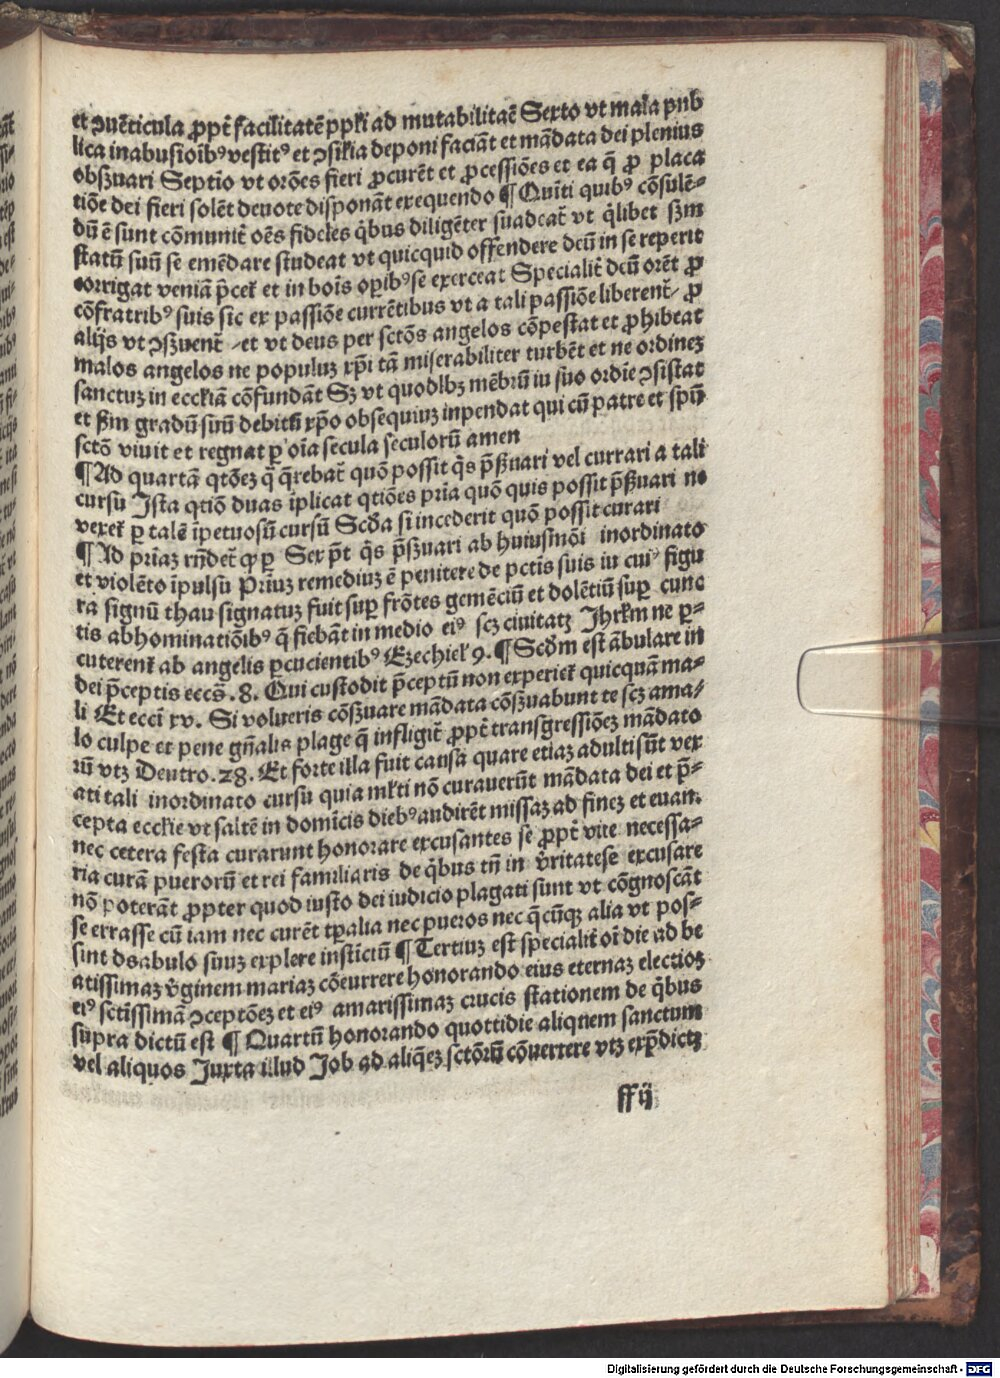 et ꝯuẽticula ꝓpt̃ facilitatẽ ppl̃i ad mutabilitaẽ Sexto vt mala pub
lica in abusiõibꝰ vestitꝰ et ꝯsil̃ia deponi faciãt et mãdata dei plenius
obsꝫuari Septĩo vt orões fieri ꝓcurẽt et ꝓcessiões et ea q̃ ꝓ placa
tiõe dei fieri solẽt deuote disponãt exequendo ¶ Quĩti quibꝰ cõsulẽ-
dũ ẽ sunt cõmunit̃ oẽs fideles q̃bus diligẽter suadeat̃ vt q̃libet sꝫm
statũ suũ se emẽdare studeat vt quicquid offendere deũ in se reperit
corrigat veniã p̃cet̃ et in bois̃ oꝑibꝰ se exerceat Specialit̃ deũ orẽt ꝓ
cõfratribꝰ suis sic ex passiõe currẽtibus vt a tali passiõe liberent̃ / ꝓ
alijs vt ꝯsꝫuent̃ / et vt deus per sctõs angelos cõpescat et ꝓhibeat
malos angelos ne populuꝫ xp̃i tã miserabiliter turbẽt et ne ordineꝫ
sanctuꝫ in eccl̃iã cõfundãt Sꝫ vt quodlbꝫ mẽbrũ iu suo ordĩe ꝯsistat
et ẜm gradũ suũ debitũ xp̃o obsequiuꝫ inpendat qui cũ patre et spũ
sctõ viuit et regnat ꝑ oĩa secula seculorũ amen
¶ Ad quartã qtõeꝫ q̃ q̃rebat̃ quõ possit q̃s p̃ẜuari vel currari a tali
cursũ Ista qtiõ duas ĩplicat qtiões prĩa quõ quis possit p̃ẜuari ne
vexet̃ ꝑ talẽ ĩpetuosũ cursũ Scđa si incederit quõ possit curari
¶ Ad prĩaꝫ rñdet̃ ꝙ ꝑ Sex p̃t q̃s p̃sꝫuari ab huiusmõi inordinato
et violẽto ĩpulsũ Prĩuꝫ remediuꝫ ẽ penitere de pctĩs suis iu cuiꝰ figu
ra signũ thau signatuꝫ fuit suꝑ frõtes gemẽciũ et dolẽtiũ suꝑ cunc
tis abhominatiõibꝰ q̃ fiebãt in medio eiꝰ scꝫ ciuitatꝫ Ihrl̃m ne ꝑ-
cuterent̃ ab angelis ꝑcucientibꝰ Ezechiel̃ 9. ¶ Scđm est ãbulare in
dei p̃ceptis eccs̃ .8. Qui custodit p̃ceptũ non experiet̃ quicquã ma-
li Et eccĩ xv. Si volueris cõsꝫuare mãdata cõsꝫuabunt te scꝫ a ma-
lo culpe et pene gñalis plage q̃ infligit̃ ꝓpt̃ transgressiõeꝫ mãdato
rũ vtꝫ Deutro. 28. Et forte illa fuit causa quare etiaꝫ adulti sũt vex
ati tali inordinato cursu quia ml̃ti nõ curauerũt mãdata dei et p̃-
cepta eccl̃ie vt saltẽ in domĩcis diebꝰ audirẽt missaꝫ ad fineꝫ et euan.
nec cetera festa curarunt honorare excusantes se ꝓpt̃ vite necessa-
ria curã puerorũ et rei familiaris de q̃bus tñ in v̾ritate se excusare
nõ poterãt ꝓpter quod iusto dei iudicio plagati sunt vt cõgnoscãt
se errasse cũ iam nec curẽt tp̃alia nec pueros nec q̃cũqꝫ alia vt pos-
sint dyabulo suuꝫ explere instĩctũ ¶ Tertiuꝫ est specialit̃ oĩ die ad be
atissimaꝫ v̾ginem mariaꝫ cõcurrere honorando eius eternaꝫ electioꝫ
eiꝰ sctĩssimã ꝯceptõeꝫ et eiꝰ amarissimaꝫ crucis stationem de q̃bus
supra dictũ est ¶ Quartũ honorando quottidie aliquem sanctum
vel aliquos Iuxta illud Job ad aliq̃eꝫ sctõrũ cõuertere vtꝫ exp̃dictꝫ
ff ij
Digitalisierung gefördert durch die Deutsche Forschungsgemeinschaft - DFG